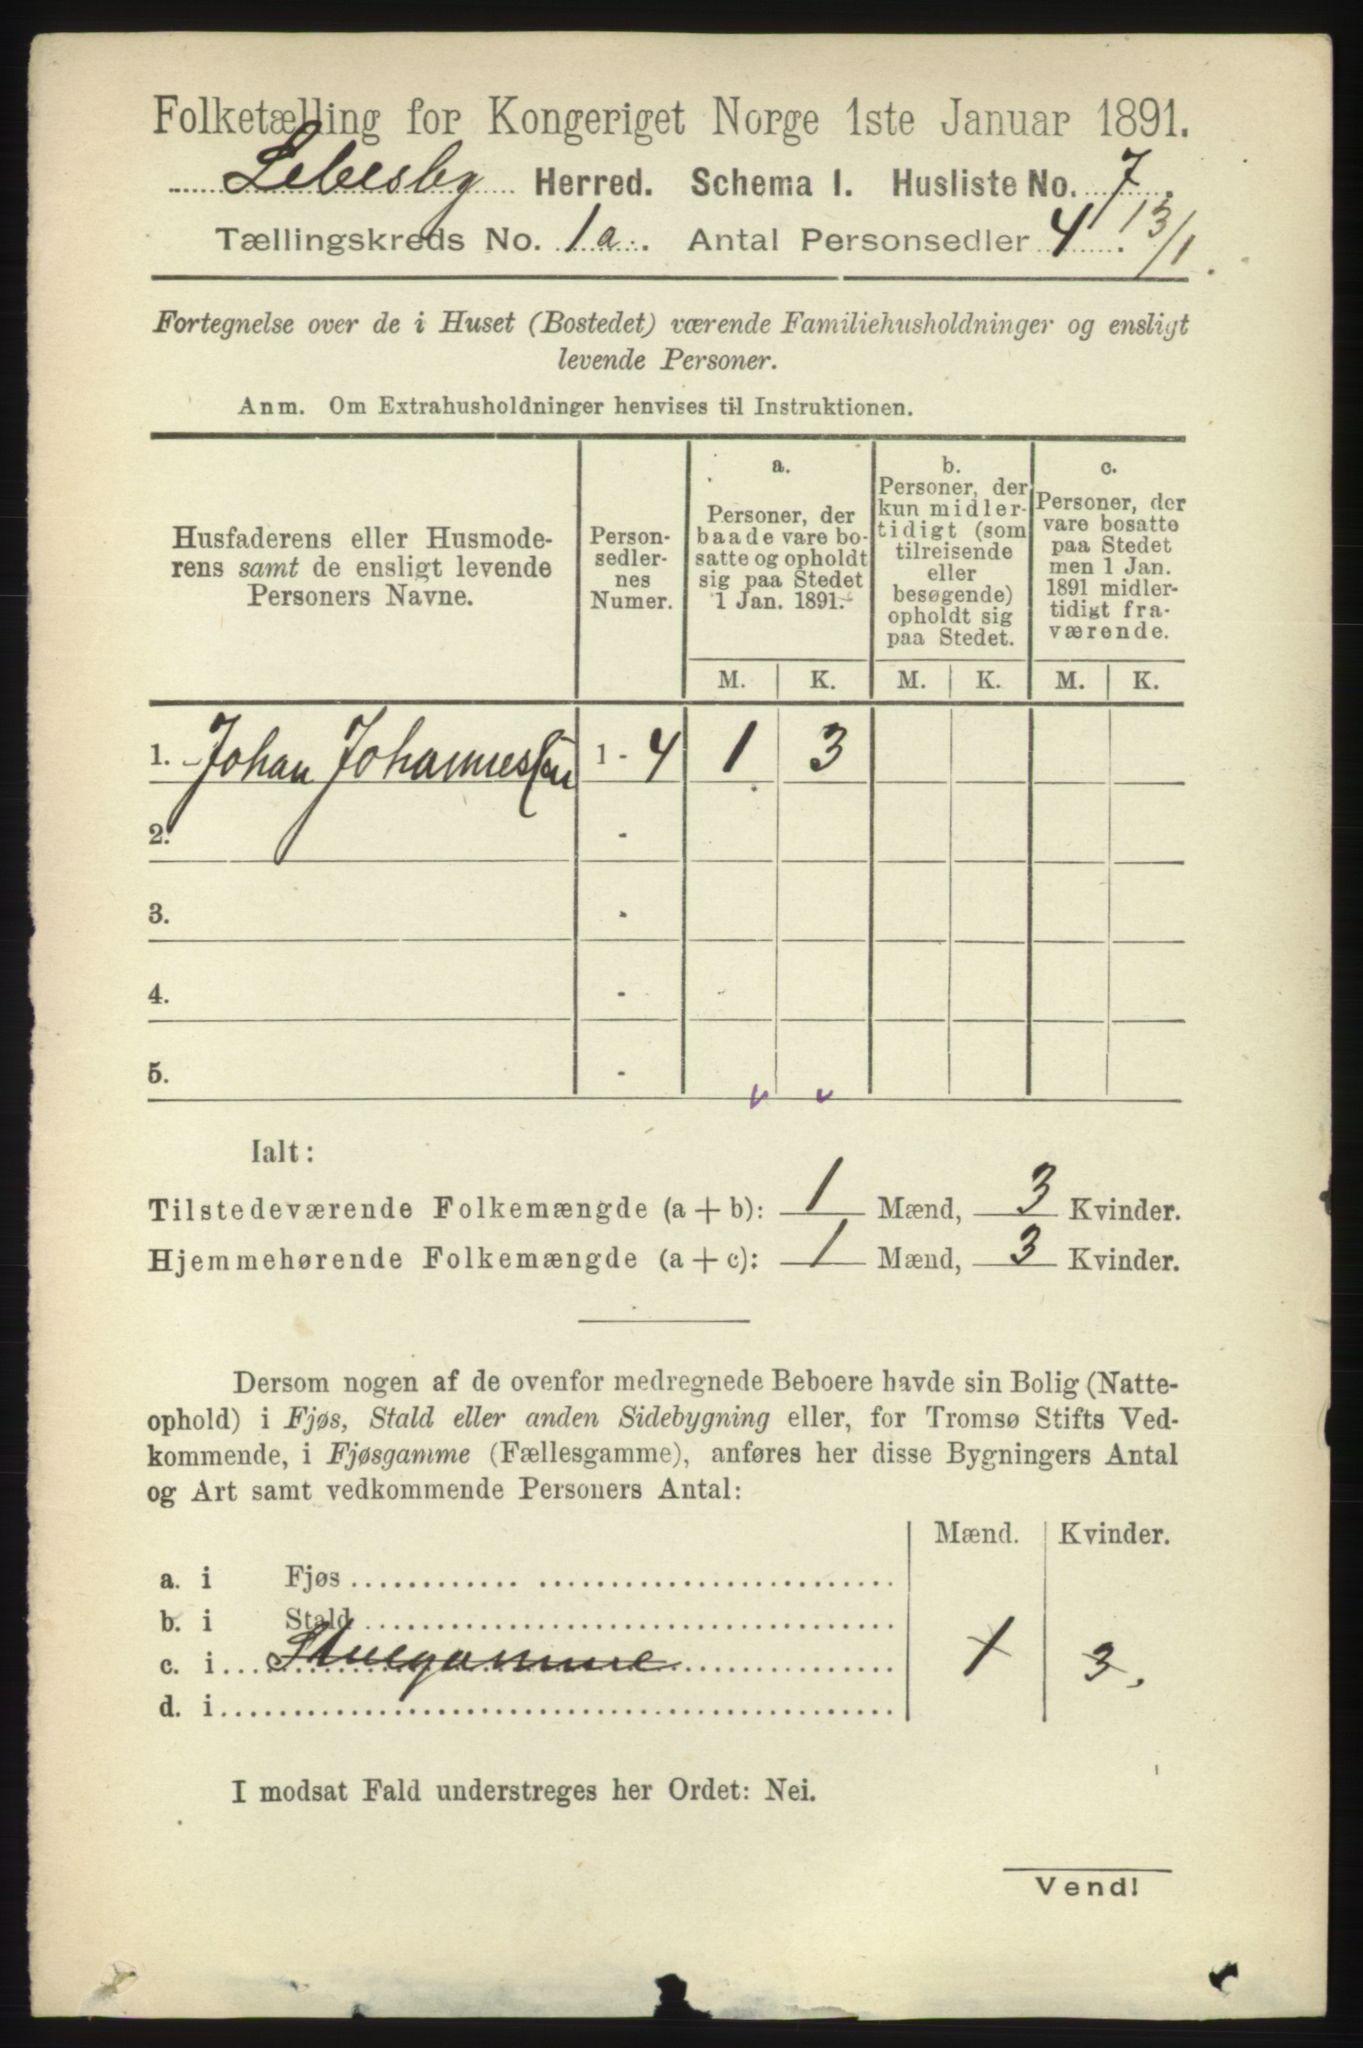 Folketælling for Kongeriget Norge 1ste Januar 1891.
Lebesby Herred. Schema I. Husliste No. 7.
Tællingskreds No. 1a. Antal Personsedler 4. 13/1
Fortegnelse over de i Huset (Bostedet) værende Familiehusholdninger og ensligt
levende Personer.
Anm. Om Extrahusholdninger henvises til Instruktionen.
Husfaderens eller Husmode-
rens samt de ensligt levende
Personers Navne.
Person-
sedler-
nes
Numer.
a.
Personer, der
baade vare bo-
satte og opholdt
sig paa Stedet
1 Jan. 1891.
b.
Personer, der
kun midler-
tidigt (som
tilreisende
eller
besøgende)
opholdt sig
paa Stedet.
c.
Personer, der
vare bosatte
paa Stedet
men 1 Jan.
1891 midler-
tidigt fra-
værende.
M. K. M. K. M. K.
1. Johan Johannessen 1 - 4 1 3
2. -
3. -
4. -
5. -
Ialt:
Tilstedeværende Folkemængde (a + b): 1 Mænd, 3 Kvinder.
Hjemmehørende Folkemængde (a + c): 1 Mænd, 3 Kvinder.
Dersom nogen af de ovenfor medregnede Beboere havde sin Bolig (Natte-
ophold) i Fjøs, Stald eller anden Sidebygning eller, for Tromsø Stifts Ved-
kommende, i Fjøsgamme (Fællesgamme), anføres her disse Bygningers Antal
og Art samt vedkommende Personers Antal:
Mænd. Kvinder.
a. i Fjøs
b. i Stald
c. i Stuegamme 1 3.
d. i
I modsat Fald understreges her Ordet: Nei.
Vend!